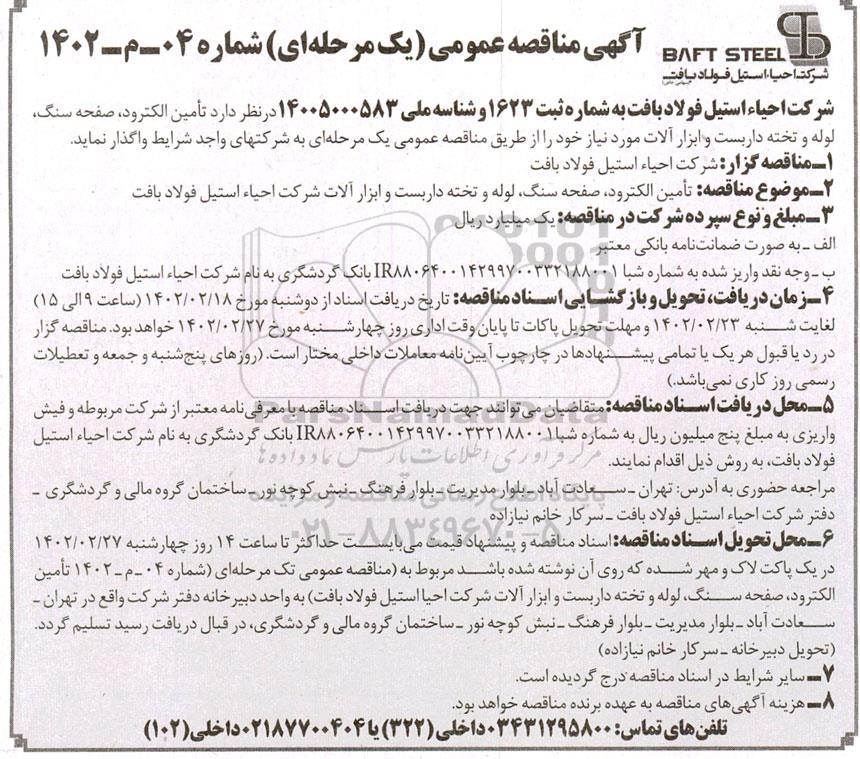 آگهی مناقصه عمومی (یک مرحله‌ای) شماره ۰۴-م-۱۴۰۲
BAFT STEEL
شرکت احیاء استیل فولاد بافت
شرکت احیاء استیل فولاد بافت به شماره ثبت ۱۶۲۳ و شناسه ملی ۱۴۰۰۵۰۰۰۵۸۳ در نظر دارد تأمین الکترود، صفحه سنگ،
لوله و تخته داربست و ابزار آلات مورد نیاز خود را از طریق مناقصه عمومی یک مرحله‌ای به شرکتهای واجد شرایط واگذار نماید.
۱- مناقصه گزار: شرکت احیاء استیل فولاد بافت
۲- موضوع مناقصه: تأمین الکترود، صفحه سنگ، لوله و تخته داربست و ابزار آلات شرکت احیاء استیل فولاد بافت
۳- مبلغ و نوع سپرده شرکت در مناقصه: یک میلیارد ریال
الف - به صورت ضمانت‌نامه بانکی معتبر
ب - وجه نقد واریز شده به شماره شبا IR۸۸۰۶۴۰۰۱۴۲۹۹۷۰۰۳۳۲۱۸۸۰۰۱ بانک گردشگری به نام شرکت احیاء استیل فولاد بافت
۴- زمان دریافت، تحویل و بازگشایی اسناد مناقصه: تاریخ دریافت اسناد از دوشنبه مورخ ۱۴۰۲/۰۲/۱۸ (ساعت ۹ الی ۱۵)
لغایت شنبه ۱۴۰۲/۰۲/۲۳ و مهلت تحویل پاکات تا پایان وقت اداری روز چهارشنبه مورخ ۱۴۰۲/۰۲/۲۷ خواهد بود. مناقصه گزار
در رد یا قبول هر یک یا تمامی پیشنهادها در چارچوب آیین‌نامه معاملات داخلی مختار است. (روزهای پنج‌شنبه و جمعه و تعطیلات
رسمی روز کاری نمی‌باشد.)
۵- محل دریافت اسناد مناقصه: متقاضیان می‌توانند جهت دریافت اسناد مناقصه با معرفی‌نامه معتبر از شرکت مربوطه و فیش
واریزی به مبلغ پنج میلیون ریال به شماره شبا IR۸۸۰۶۴۰۰۱۴۲۹۹۷۰۰۳۳۲۱۸۸۰۰۱ بانک گردشگری به نام شرکت احیاء استیل
فولاد بافت، به روش ذیل اقدام نمایند.
مراجعه حضوری به آدرس: تهران - سعادت آباد - بلوار مدیریت - بلوار فرهنگ - نبش کوچه نور - ساختمان گروه مالی و گردشگری -
دفتر شرکت احیاء استیل فولاد بافت - سرکار خانم نیازاده
۶- محل تحویل اسناد مناقصه: اسناد مناقصه و پیشنهاد قیمت می‌بایست حداکثر تا ساعت ۱۴ روز چهارشنبه ۱۴۰۲/۰۲/۲۷
در یک پاکت لاک و مهر شده که روی آن نوشته شده باشد مربوط به (مناقصه عمومی تک مرحله‌ای (شماره ۰۴-م-۱۴۰۲ تأمین
الکترود، صفحه سنگ، لوله و تخته داربست و ابزار آلات شرکت احیا استیل فولاد بافت) به واحد دبیرخانه دفتر شرکت واقع در تهران -
سعادت آباد - بلوار مدیریت - بلوار فرهنگ - نبش کوچه نور - ساختمان گروه مالی و گردشگری، در قبال دریافت رسید تسلیم گردد.
(تحویل دبیرخانه - سرکار خانم نیازاده)
۷- سایر شرایط در اسناد مناقصه درج گردیده است.
۸- هزینه آگهی‌های مناقصه به عهده برنده مناقصه خواهد بود.
تلفن‌های تماس: ۰۳۴۳۱۲۹۵۸۰۰ داخلی (۳۲۲) یا ۰۲۱۸۷۷۰۰۴۰۴ داخلی (۱۰۲)
ParsNamadData
مرکز فرآوری اطلاعات پارس نماد داده‌ها
پایگاه اطلاع رسانی مناقصه و مزایده
۰۲۱-۸۸۳۴۹۶۷۰-۵